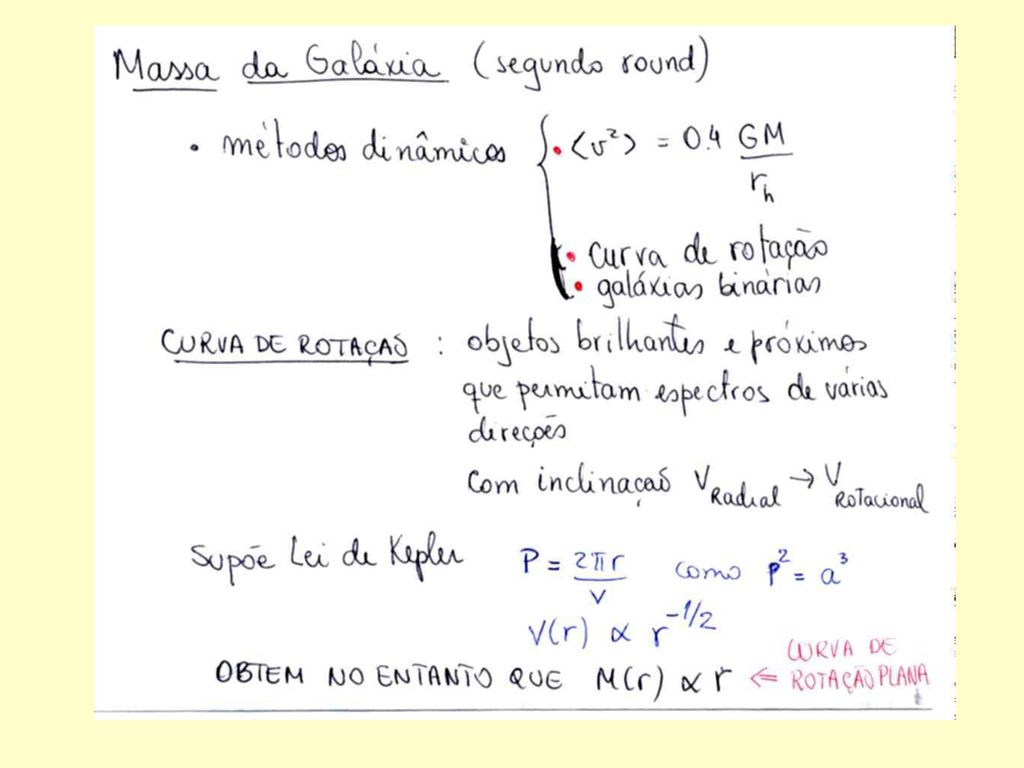 Massa da Galáxia (segundo round)
• métodos dinâmicos { • <v²> = 0.4 GM/r_h
• curva de rotação
• galáxias binárias
CURVA DE ROTAÇAÕ : objetos brilhantes e próximos
que permitam espectros de várias
direções
Com inclinaçaõ V_Radial → V_ROTacional
Supõe Lei de Kepler P = 2πr/v como P² = a³
V(r) ∝ r^-1/2
OBTEM NO ENTANTO QUE M(r) ∝ r ⇐ CURVA DE
ROTAÇÃO PLANA